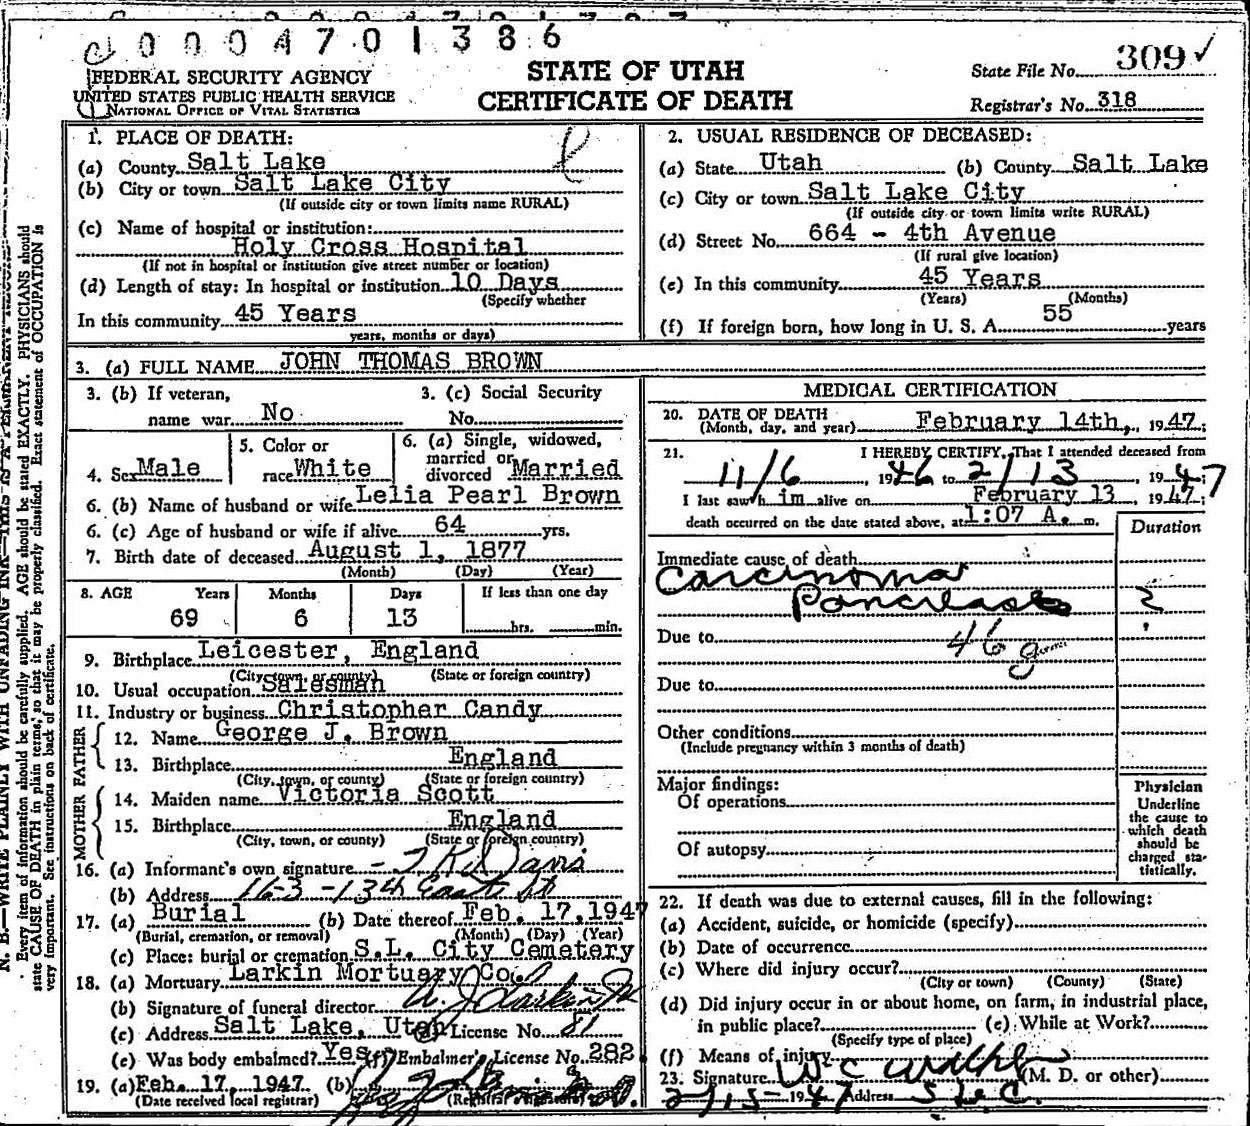 0 0 0 4 7 0 1 3 8 6
FEDERAL SECURITY AGENCY
UNITED STATES PUBLIC HEALTH SERVICE
NATIONAL OFFICE OF VITAL STATISTICS
STATE OF UTAH
CERTIFICATE OF DEATH
State File No. 309 ✓
Registrar's No. 318
1. PLACE OF DEATH:
(a) County Salt Lake
(b) City or town Salt Lake City
(If outside city or town limits name RURAL)
(c) Name of hospital or institution:
Holy Cross Hospital
(If not in hospital or institution give street number or location)
(d) Length of stay: In hospital or institution 10 Days
(Specify whether
In this community 45 Years
years, months or days)
2. USUAL RESIDENCE OF DECEASED:
(a) State Utah (b) County Salt Lake
(c) City or town Salt Lake City
(If outside city or town limits write RURAL)
(d) Street No. 664 - 4th Avenue
(If rural give location)
(e) In this community 45 Years
(Years) (Months)
(f) If foreign born, how long in U. S. A. 55 years
3. (a) FULL NAME JOHN THOMAS BROWN
3. (b) If veteran, name war No
3. (c) Social Security No.
4. Sex Male
5. Color or race White
6. (a) Single, widowed, married or divorced Married
6. (b) Name of husband or wife Lelia Pearl Brown
6. (c) Age of husband or wife if alive 64 yrs.
7. Birth date of deceased August 1, 1877
(Month) (Day) (Year)
8. AGE Years Months Days If less than one day
69 6 13 hrs. min.
9. Birthplace Leicester, England
(City, town, or county) (State or foreign country)
10. Usual occupation Salesman
11. Industry or business Christopher Candy
FATHER
12. Name George J. Brown
13. Birthplace England
(City, town, or county) (State or foreign country)
MOTHER
14. Maiden name Victoria Scott
15. Birthplace England
(City, town, or county) (State or foreign country)
16. (a) Informant's own signature Davis
(b) Address 163 - 13th East St
17. (a) Burial (b) Date thereof Feb. 17, 1947
(Burial, cremation, or removal) (Month) (Day) (Year)
(c) Place: burial or cremation S.L. City Cemetery
18. (a) Mortuary Larkin Mortuary Co.
(b) Signature of funeral director Larkin
(c) Address Salt Lake, Utah License No. 81
(e) Was body embalmed? Yes (f) Embalmer's License No. 282
19. (a) Feb. 17, 1947 (b)
(Date received local registrar) (Registrar's signature)
MEDICAL CERTIFICATION
20. DATE OF DEATH
(Month, day, and year) February 14th, 1947;
21. I HEREBY CERTIFY, That I attended deceased from
11/6, 1946 to 2/13, 1947;
I last saw h im alive on February 13, 1947;
death occurred on the date stated above, at 1:07 A. m.
Duration
Immediate cause of death
Carcinoma
Pancreas ?
Due to 46 g
Due to
Other conditions
(Include pregnancy within 3 months of death)
Major findings:
Of operations
Of autopsy
Physician
Underline
the cause to
which death
should be
charged sta-
tistically.
22. If death was due to external causes, fill in the following:
(a) Accident, suicide, or homicide (specify)
(b) Date of occurrence
(c) Where did injury occur?
(City or town) (County) (State)
(d) Did injury occur in or about home, on farm, in industrial place,
in public place? (e) While at Work?
(Specify type of place)
(f) Means of injury
23. Signature W C (M. D. or other)
2/15-1947 Address S L C.
N. B.—WRITE PLAINLY WITH UNFADING INK—THIS IS A PERMANENT RECORD.
Every item of information should be carefully supplied. AGE should be stated EXACTLY. PHYSICIANS should
state CAUSE OF DEATH in plain terms, so that it may be properly classified. Exact statement of OCCUPATION is
very important. See instructions on back of certificate.